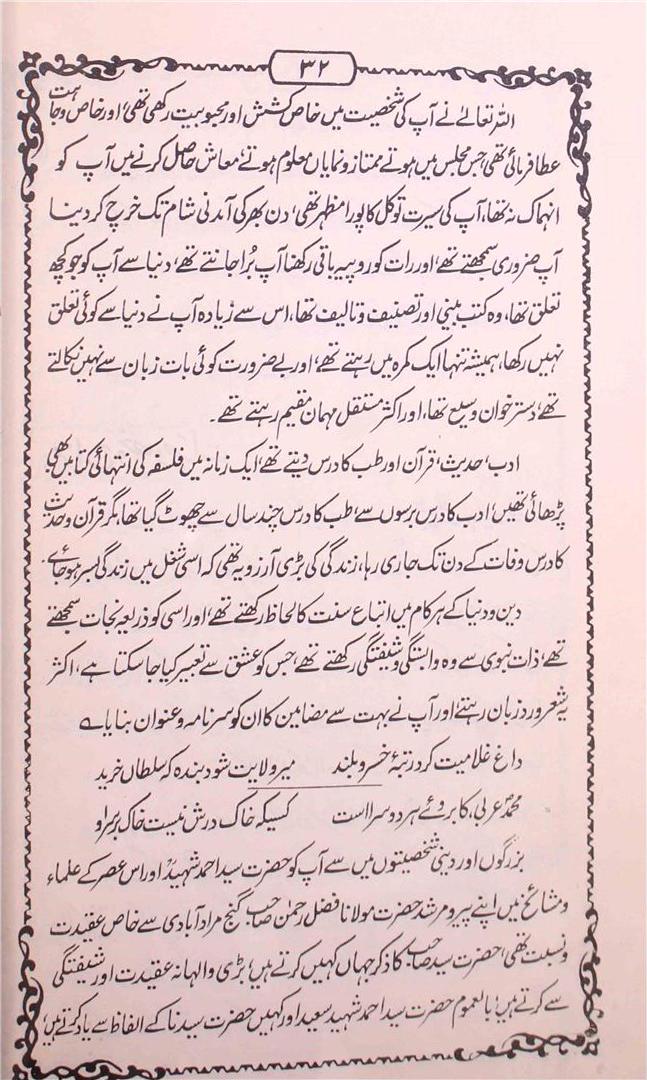 ۳۲
اللہ تعالےٰ نے آپ کی شخصیت میں خاص کشش اور محبوبیت رکھی تھی، اور خاص وجاہت
عطا فرمائی تھی، جس مجلس میں ہوتے ممتاز و نمایاں معلوم ہوتے، معاش حاصل کرنے میں آپ کو
انہماک نہ تھا، آپ کی سیرت توکل کا پورا مظہر تھی، دن بھر کی آمدنی شام تک خرچ کر دینا
آپ ضروری سمجھتے تھے، اور رات کو روپیہ باقی رکھنا آپ بُرا جانتے تھے، دنیا سے آپ کو جو کچھ
تعلق تھا، وہ کتب بینی اور تصنیف و تالیف تھا، اس سے زیادہ آپ نے دنیا سے کوئی تعلق
نہیں رکھا، ہمیشہ تنہا ایک کمرہ میں رہتے تھے، اور بے ضرورت کوئی بات زبان سے نہیں نکالتے
تھے، دستر خوان وسیع تھا، اور اکثر مستقل مہمان مقیم رہتے تھے۔
ادب، حدیث، قرآن اور طب کا درس دیتے تھے، ایک زمانہ میں فلسفہ کی انتہائی کتابیں بھی
پڑھائی تھیں، ادب کا درس برسوں سے، طب کا درس چند سال سے چھوٹ گیا تھا، مگر قرآن و حدیث
کا درس وفات کے دن تک جاری رہا، زندگی کی بڑی آرزو یہ تھی کہ اسی شغل میں زندگی بسر ہو جائے۔
دین و دنیا کے ہر کام میں اتباع سنت کا لحاظ رکھتے تھے، اور اسی کو ذریعہ نجات سمجھتے
تھے، ذات نبوی سے وہ وابستگی و شیفتگی رکھتے تھے، جس کو عشق سے تعبیر کیا جا سکتا ہے، اکثر
یہ شعر ورد زبان رہتے، اور آپ نے بہت سے مضامین کا ان کو سرنامہ و عنوان بنایا ؎
داغ غلامیت کرد رتبۂ خسرو بلند میر ولایت شود بندہ کہ سلطاں خرید
محمدؐ عربی، کابروئے ہر دو سرا است کسیکہ خاک درش نیست خاک بر سر او
بزرگوں اور دینی شخصیتوں میں سے آپ کو حضرت سید احمد شہیدؒ اور اس عصر کے علماء
و مشائخ میں اپنے پیر و مرشد حضرت مولانا فضل رحمٰن صاحب گنج مرادآبادی سے خاص عقیدت
و نسبت تھی، حضرت سید صاحب کا ذکر جہاں کہیں کرتے ہیں، بڑی والہانہ عقیدت اور شیفتگی
سے کرتے ہیں، بالعموم حضرت سید احمد شہید سعید اور کہیں حضرت سیدنا کے الفاظ سے یاد کرتے ہیں،